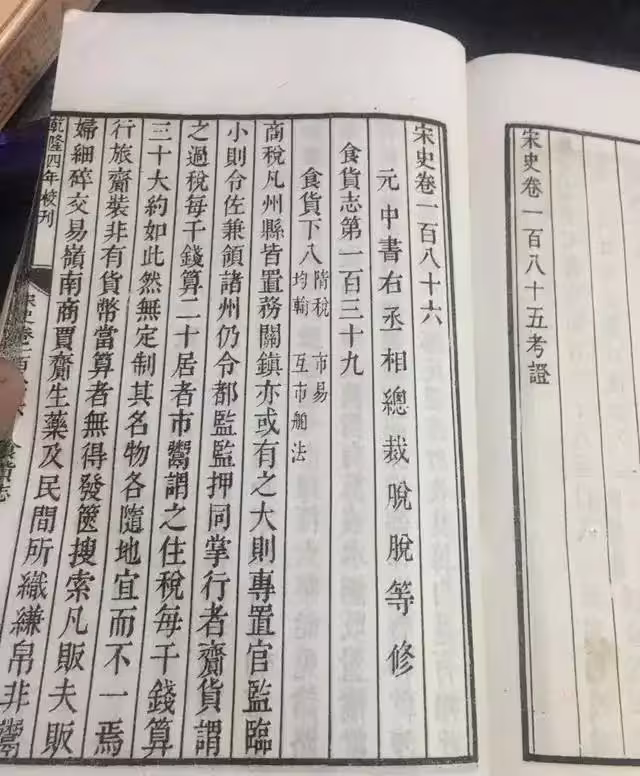 宋史卷一百八十五考證
宋史卷一百八十六
元中書右丞相總裁脫脫等修
食貨志第一百三十九
食貨下八
商稅 市易
均輸 互市舶法
商稅凡州縣皆置務關鎮亦或有之大則專置官監臨
小則令佐兼領諸州仍令都監監押同掌行者齎貨謂
之過稅每千錢算二十居者市鬻謂之住稅每千錢算
三十大約如此然無定制其名物各隨地宜而不一焉
行旅齎裝非有貨幣當算者無得發篋搜索凡販夫販
婦細碎交易嶺南商賈齎生藥及民間所織縑帛非鬻
乾隆四年校刊
宋史卷一百 食貨志